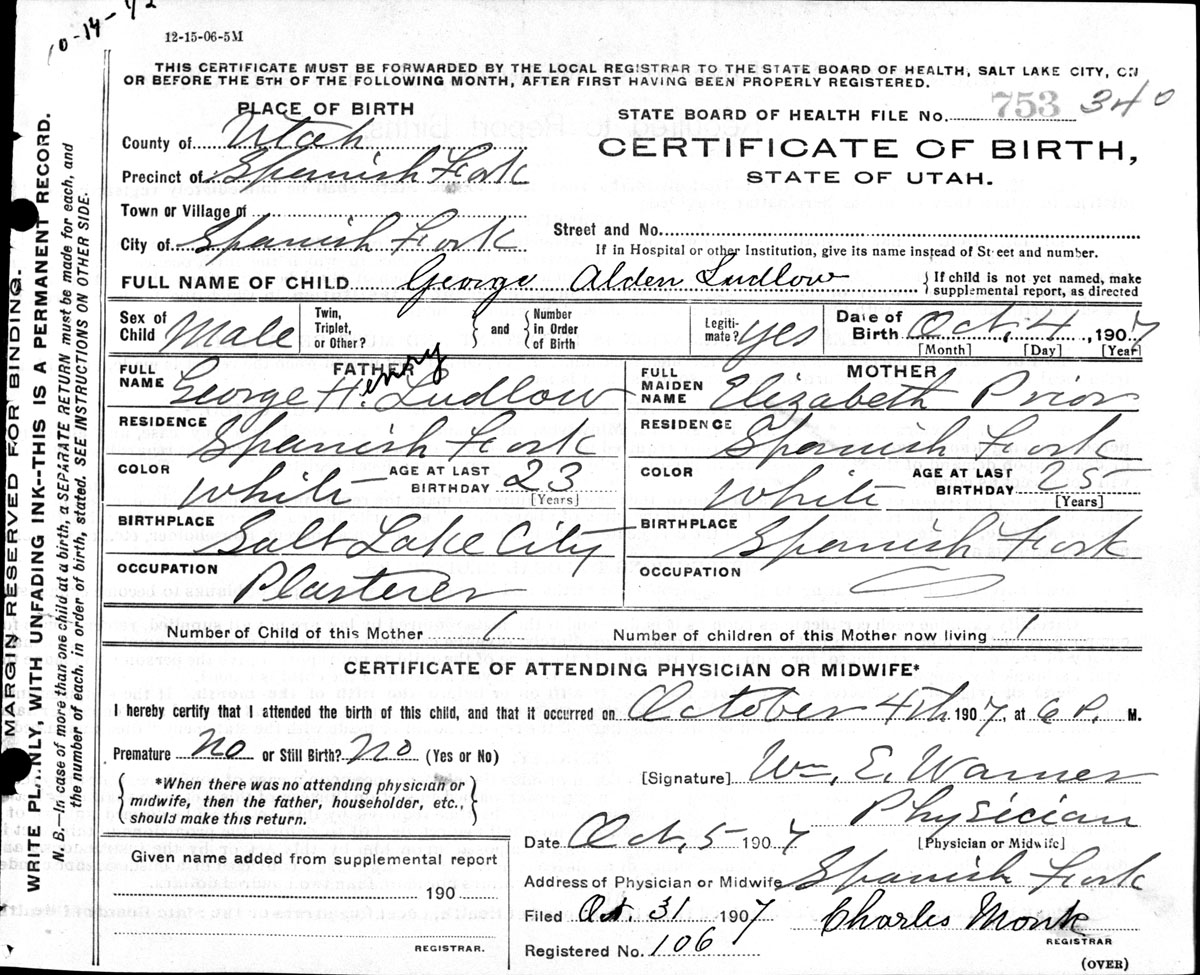 10-14-42
12-15-06-5M
THIS CERTIFICATE MUST BE FORWARDED BY THE LOCAL REGISTRAR TO THE STATE BOARD OF HEALTH, SALT LAKE CITY, ON
OR BEFORE THE 5TH OF THE FOLLOWING MONTH, AFTER FIRST HAVING BEEN PROPERLY REGISTERED.
PLACE OF BIRTH
STATE BOARD OF HEALTH FILE No. 753 340
County of Utah
CERTIFICATE OF BIRTH,
Precinct of Spanish Fork
STATE OF UTAH.
Town or Village of
Street and No.
City of Spanish Fork
If in Hospital or other Institution, give its name instead of Street and number.
FULL NAME OF CHILD George Alden Ludlow { If child is not yet named, make supplemental report, as directed
Sex of Child Male
Twin, Triplet, or Other? { and } Number in Order of Birth
Legiti-mate? yes
Date of Birth Oct, 4, 1907
[Month] [Day] [Year]
FATHER
FULL NAME George H. enry Ludlow
RESIDENCE Spanish Fork
COLOR White AGE AT LAST BIRTHDAY 23 [Years]
BIRTHPLACE Salt Lake City
OCCUPATION Plasterer
MOTHER
FULL MAIDEN NAME Elizabeth Prior
RESIDENCE Spanish Fork
COLOR White AGE AT LAST BIRTHDAY 25 [Years]
BIRTHPLACE Spanish Fork
OCCUPATION
Number of Child of this Mother 1 Number of children of this Mother now living 1
CERTIFICATE OF ATTENDING PHYSICIAN OR MIDWIFE*
I hereby certify that I attended the birth of this child, and that it occurred on October 4th 1907, at 6 P. M.
Premature No or Still Birth? No (Yes or No)
{ *When there was no attending physician or midwife, then the father, householder, etc., should make this return. }
[Signature] Wm. E. Warner
Physician
[Physician or Midwife]
Date Oct, 5 1907
Address of Physician or Midwife Spanish Fork
Filed Oct. 31 1907 Charles Monk
REGISTRAR
Registered No. 106
(OVER)
Given name added from supplemental report
190
REGISTRAR.
MARGIN RESERVED FOR BINDING.
WRITE PLAINLY, WITH UNFADING INK--THIS IS A PERMANENT RECORD.
N. B.—In case of more than one child at a birth, a SEPARATE RETURN must be made for each, and
the number of each, in order of birth, stated. SEE INSTRUCTIONS ON OTHER SIDE.